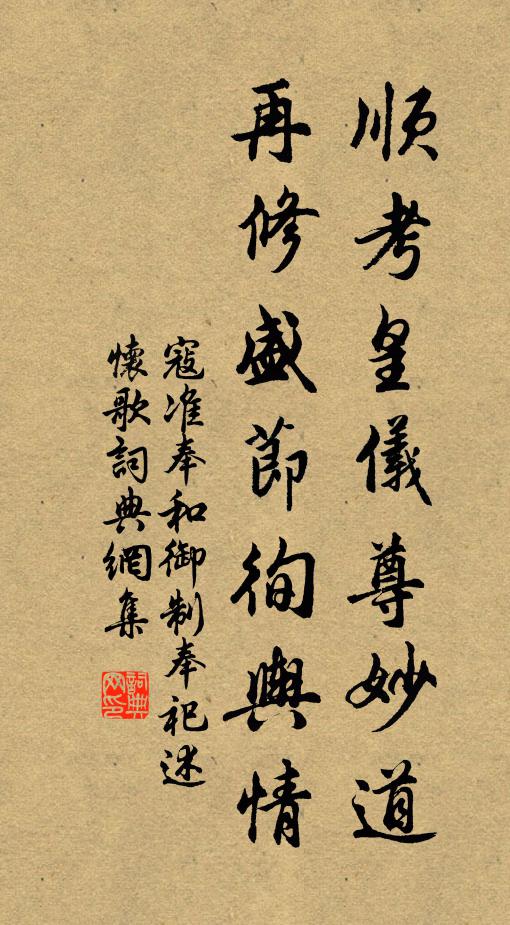 順考皇儀尊妙道
再修盛節徇輿情
寇准奉和御制奉祀述
懷歌詞典網集
詞典
网印